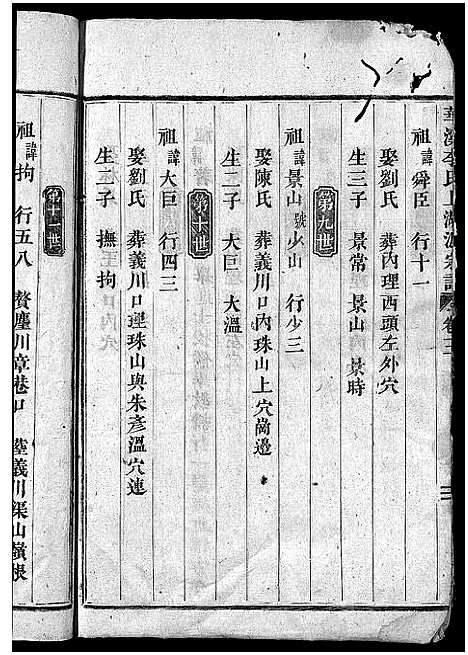 李氏上湖派宗譜 卷三
祖諱舜臣 行十一
娶劉氏 葬內理西頭左外穴
生三子 景常 景山 景時
第九世
祖諱景山號少山 行少三
娶陳氏 葬義川口內珠山上穴崗邉
生二子 大巨 大溫
第十世
祖諱大巨 行四三
娶劉氏 葬義川口理珠山與朱彥溫穴連
生二子 撫 拘
第十一世
祖諱拘 行五八 贅塵川章巷口 葬義川渠山嶺根